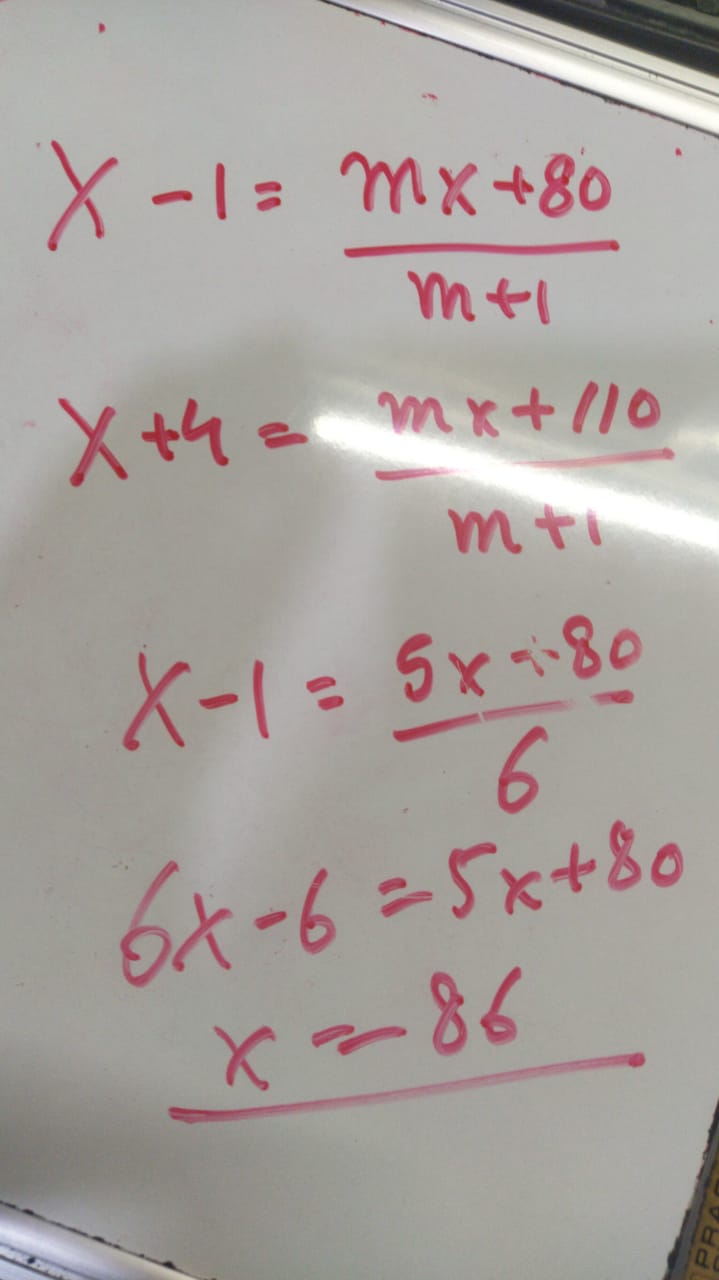 X - 1 = mx + 80
m + 1
X + 4 = mx + 110
m + 1
X - 1 = 5x + 80
6
6x - 6 = 5x + 80
x = 86
PRA